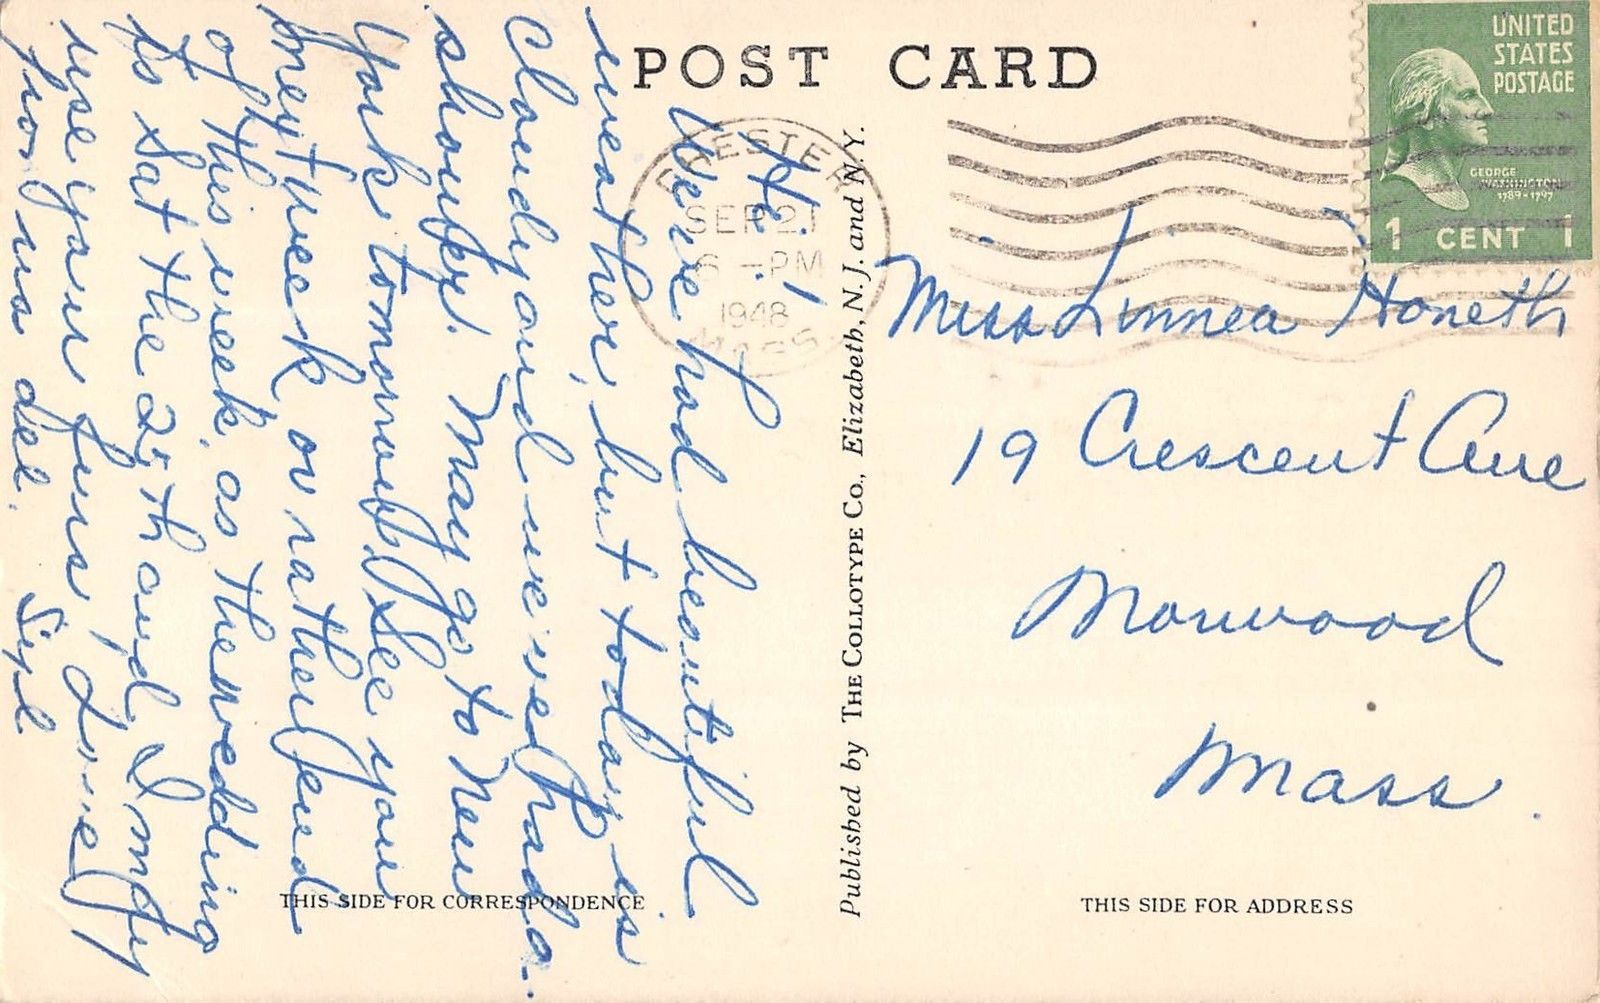 POST CARD
UNITED
STATES
POSTAGE
GEORGE
WASHINGTON
1789-1797
1 CENT 1
SEP 21
6 - PM
1948
MASS
Hi!
We've had beautiful
weather, but today is
cloudy and we've had a
shower. May go to New
York tomorrow. See you
next week or rather end
of this week, as the wedding
is Sat the 25th and I may
use your furs. Love
from us all.
THIS SIDE FOR CORRESPONDENCE
Published by THE COLLOTYPE Co., Elizabeth, N. J. and N.Y.
Miss Linnea Honeth
19 Crescent Ave
Norwood
Mass.
THIS SIDE FOR ADDRESS